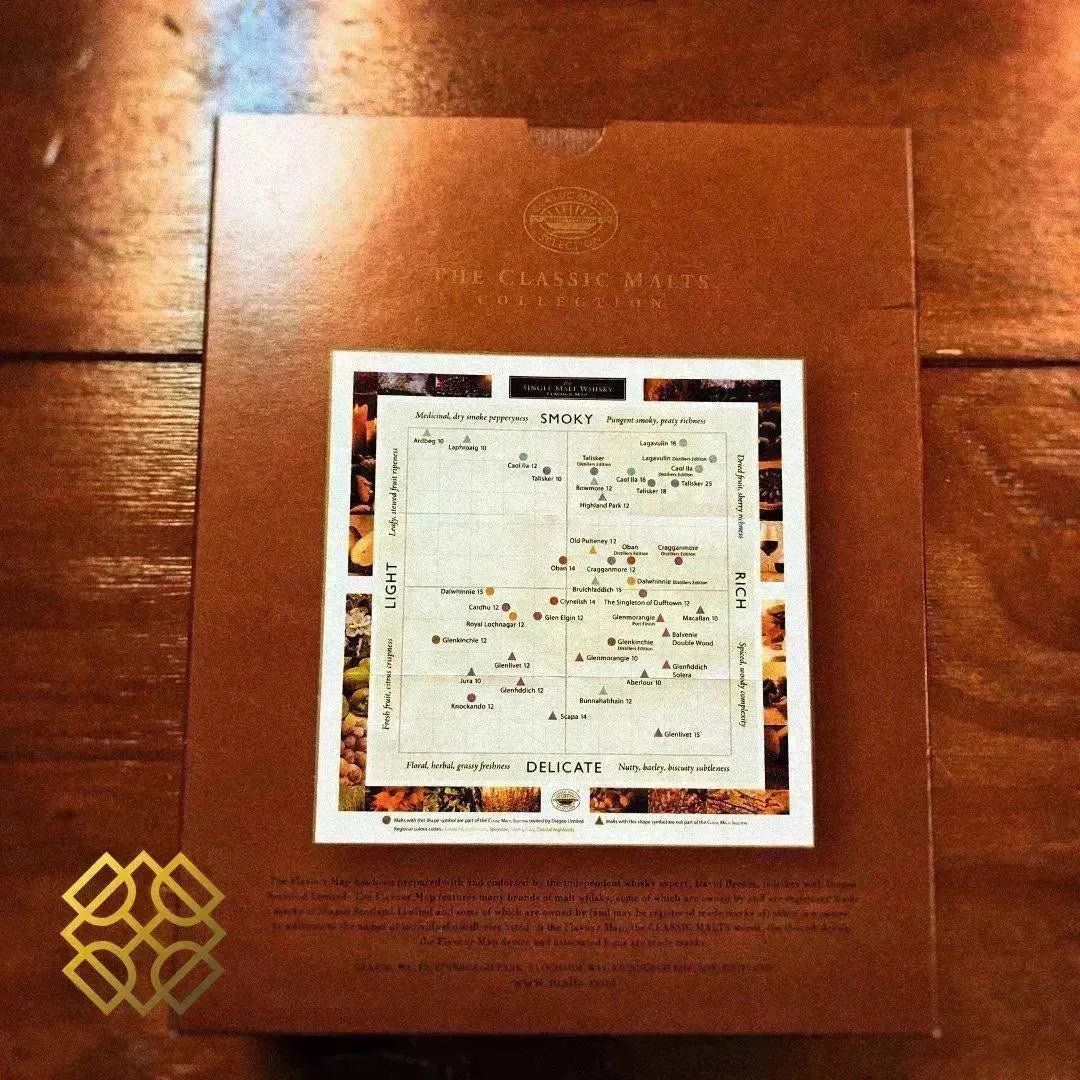 CLASSIC MALTS
SELECTION
THE CLASSIC MALTS
COLLECTION
The
SINGLE MALT WHISKY
FLAVOUR MAP
Medicinal, dry smoke pepperyness SMOKY Pungent smoky, peaty richness
Ardbeg 10
Laphroaig 10
Caol Ila 12
Talisker 10
Lagavulin 16
Talisker
Distillers Edition
Lagavulin Distillers Edition
Caol Ila
Distillers Edition
Caol Ila 18
Talisker 25
Bowmore 12
Talisker 18
Highland Park 12
Leafy, stewed fruit ripeness
Dried fruit, sherry richness
Old Pulteney 12
Oban
Distillers Edition
Cragganmore
Distillers Edition
Oban 14
Cragganmore 12
LIGHT
RICH
Bruichladdich 15
Dalwhinnie Distillers Edition
Dalwhinnie 15
Clynelish 14
The Singleton of Dufftown 12
Cardhu 12
Royal Lochnagar 12
Glen Elgin 12
Glenmorangie
Port Finish
Macallan 10
Balvenie
Double Wood
Glenkinchie 12
Glenkinchie
Distillers Edition
Glenlivet 12
Glenmorangie 10
Glenfiddich
Solera
Jura 10
Aberlour 10
Glenfiddich 12
Bunnahabhain 12
Knockando 12
Scapa 14
Glenlivet 15
Fresh fruit, citrus crispness
Spiced, woody complexity
Floral, herbal, grassy freshness DELICATE Nutty, barley, biscuity subtleness
Malts with this shape symbol are part of the CLASSIC MALTS SELECTION owned by Diageo Limited
Malts with this shape symbol are not part of the CLASSIC MALTS SELECTION
Regional colour codes - Lowland, Speyside, Islands, Islay, Coastal Highlands
The Flavour Map has been prepared with and endorsed by the independent whisky expert, David Broom, together with Diageo
Scotland Limited. The Flavour Map features many brands of malt whisky, some of which are owned by and are registered trade
marks of Diageo Scotland Limited and some of which are owned by (and may be registered trade marks of) others
the names of individual distilleries listed on the Flavour Map, the CLASSIC MALTS
the Flavour Map device and associated logos are trade marks.
CLASSIC MALTS, EDINBURGH PARK, 5 LOCHSIDE WAY, EDINBURGH
www.malts.com